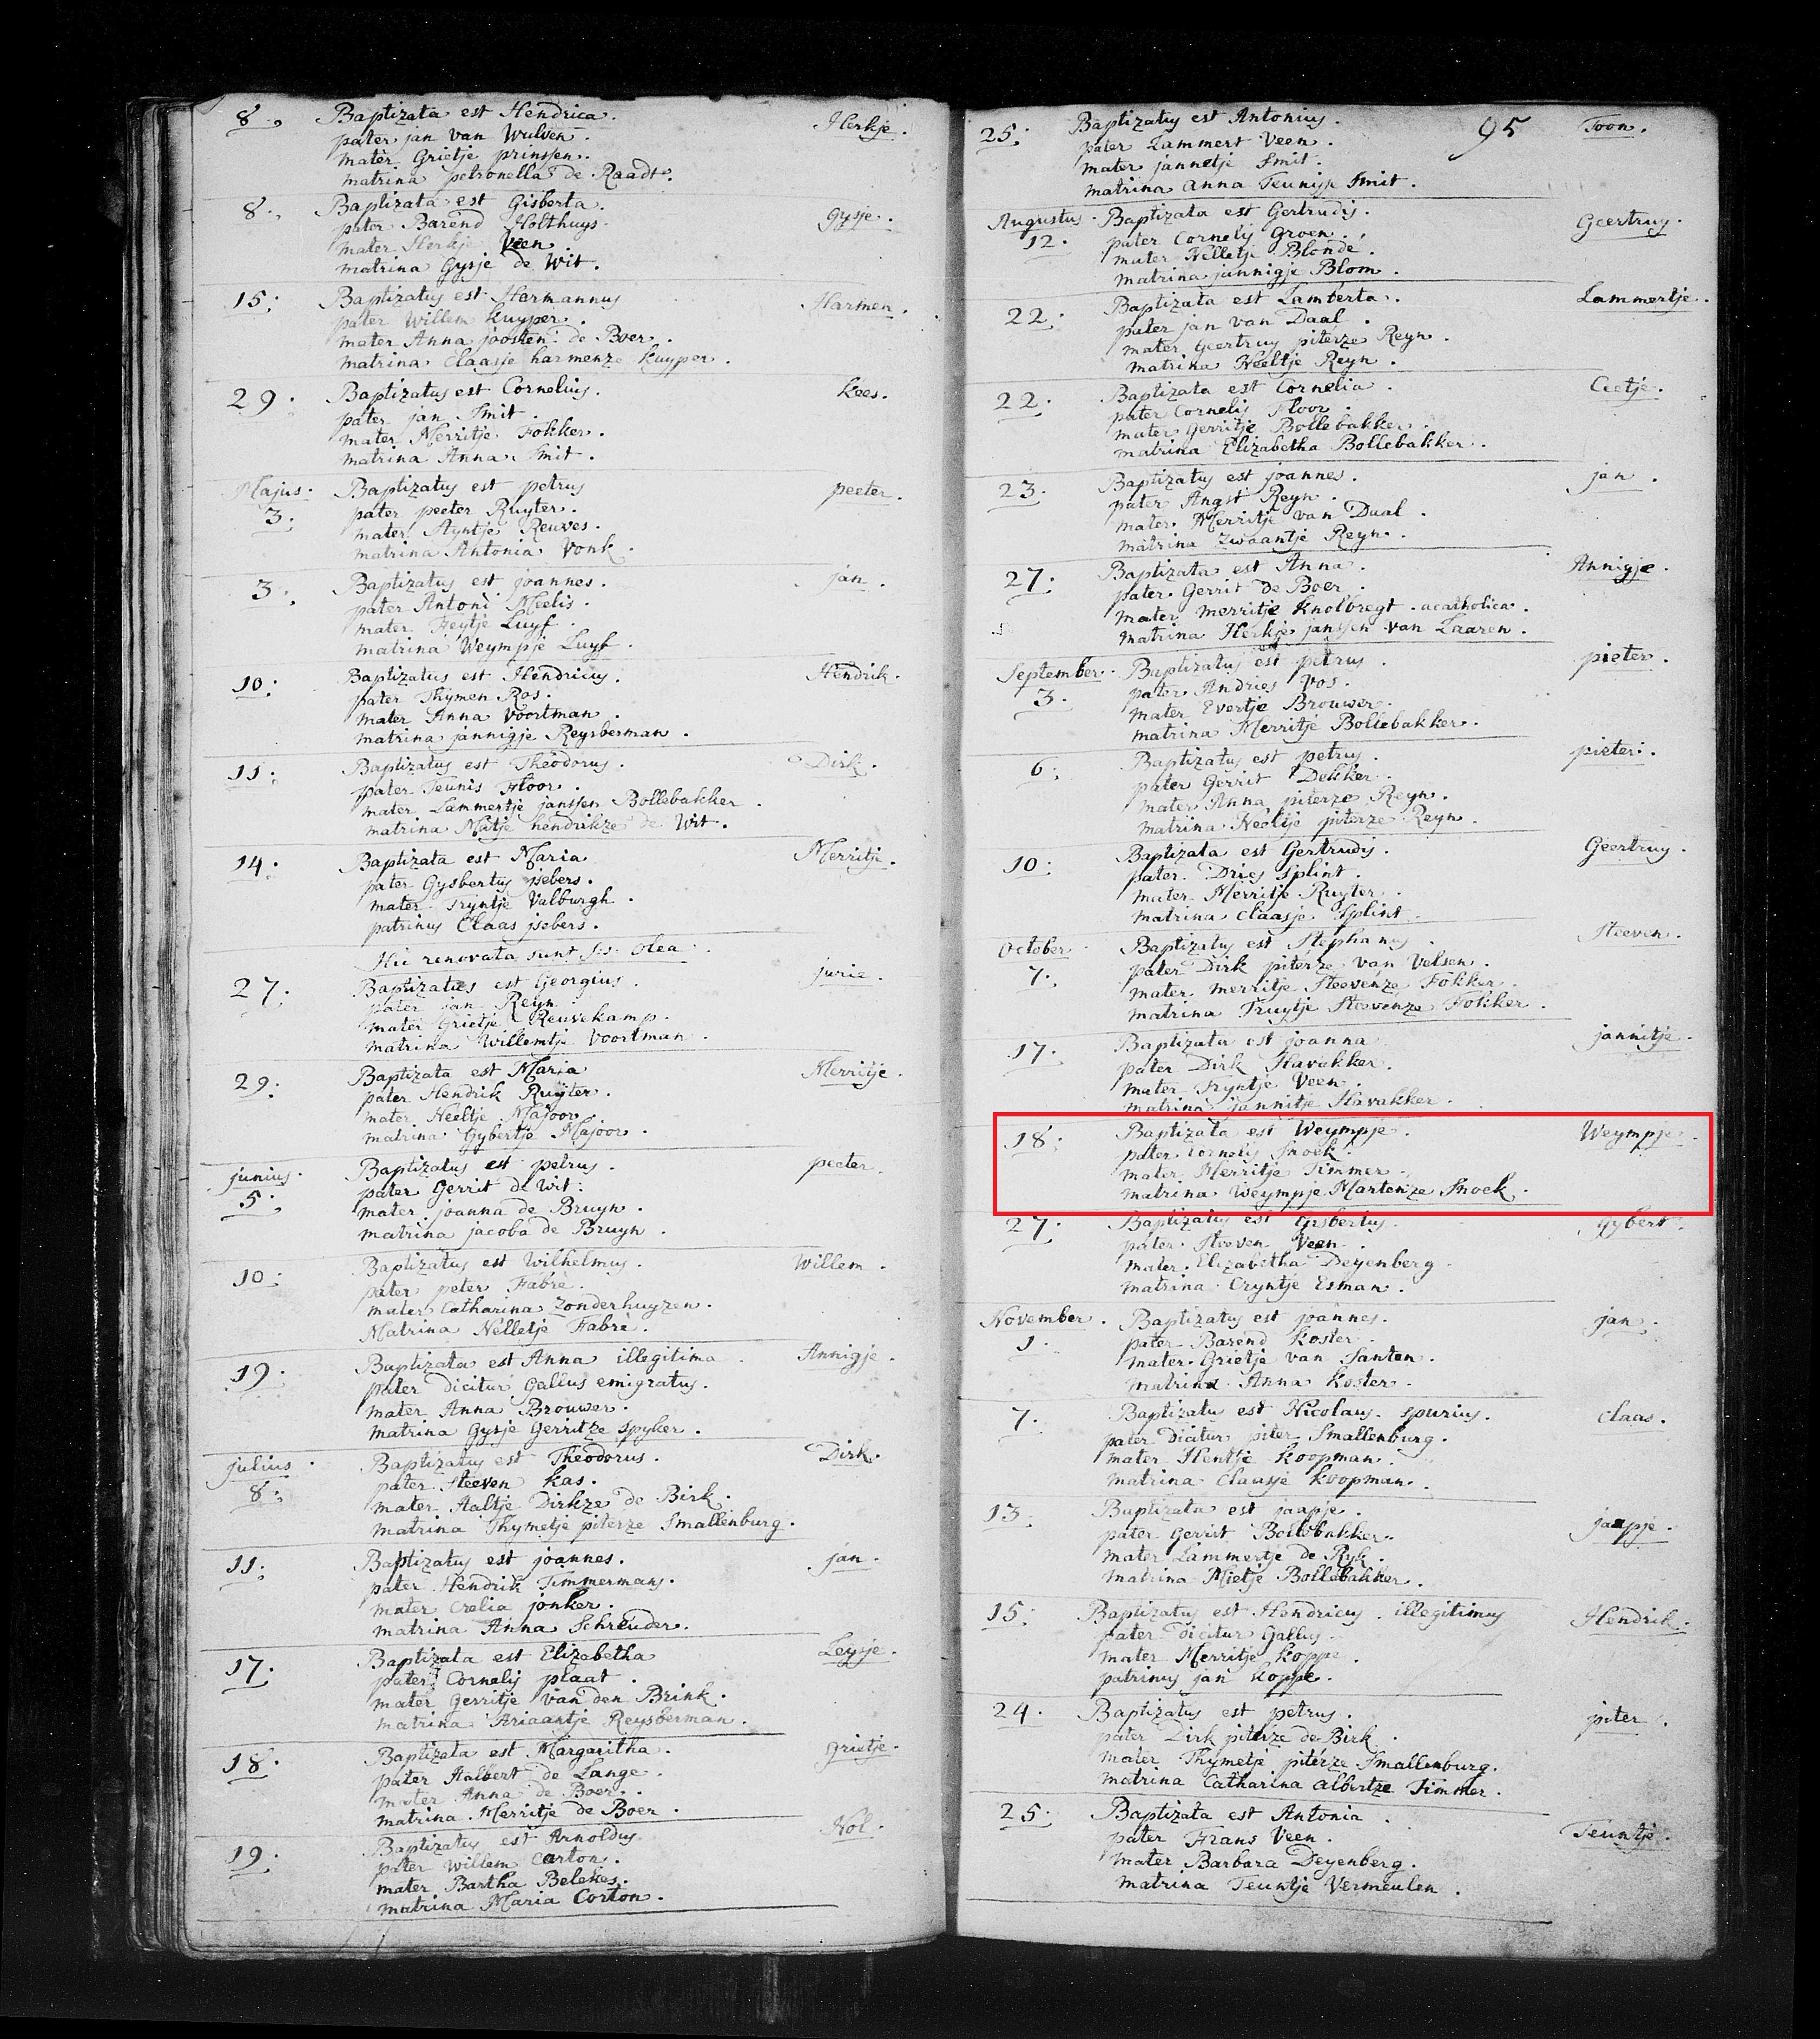 8. Baptizata est Hendrica. Herkje.
pater jan van Wulven.
mater Grietje prinssen.
matrina petronella de Raadt.
8. Baptizata est Gisberta. Gysje.
pater Barend Holthuys.
mater Herkje Veen
matrina Gysje de Wit.
15. Baptizatus est Hermannus Harmen.
pater Willem Kuyper.
mater Anna joosten de Boer.
matrina Claasje harmenze Kuyper.
29. Baptizatus est Cornelius. Kees.
pater jan Smit.
mater Merritje Fokker.
matrina Anna Smit.
Majus. Baptizatus est petrus peeter.
3. pater peeter Ruyter.
mater Ayntje Reuves.
matrina Antonia Vonk.
3. Baptizatus est joannes. jan.
pater Antoni Meelis.
mater Feytje Luyf.
matrina Weympje Luyf.
10. Baptizatus est Hendricus. Hendrik.
pater Thymen Ras.
mater Anna Voortman.
matrina jannigje Reysberman.
11. Baptizatus est Theodorus. Dirk.
pater Teunis Floor.
mater Lammertje janssen Bollebakker.
matrina Matje hendrikze de Wit.
14. Baptizata est Maria Merritje.
pater Gysbertus jsebers.
mater Tryntje Valburgh.
patrinus Claas jsebers.
Hic renovata sunt Ss. Olea.
27. Baptizatus est Georgius. jurie.
pater jan Reyn.
mater Grietje Reuvekamp.
matrina Willemtje Voortman.
29. Baptizata est Maria Merritje.
pater Hendrik Ruyter.
mater Neeltje Majoor.
matrina Gybertje Majoor.
junius. Baptizatus est petrus. peeter.
5. pater Gerrit de Wit.
mater joanna de Bruyn.
matrina jacoba de Bruyn.
10. Baptizatus est Wilhelmus. Willem.
pater peter Fabre.
mater Catharina Zonderhuyzen.
Matrina Nelletje Fabre.
19. Baptizata est Anna illegitima. Annigje.
pater dicitur Gallus emigratus.
mater Anna Brouwer.
matrina Gysje Gerritze Spyker.
julius. Baptizatus est Theodorus. Dirk.
8. pater Steeven Kas.
mater Aaltje Dirkze de Birk.
matrina Thymetje piterze Smallenburg.
11. Baptizatus est joannes. jan.
pater Hendrik Timmermans.
mater Crelia jonker.
matrina Anna Schreuder.
17. Baptizata est Elizabetha Leysje.
pater Cornelis plaat.
mater Gerritje van den Brink.
matrina Ariaantje Reysberman.
18. Baptizata est Margaritha. Grietje.
pater Aalbert de Lange.
mater Anna de Boer.
matrina Merritje de Boer.
19. Baptizatus est Arnoldus. Nol.
pater Willem Corton.
mater Bartha Belekes.
matrina Maria Corton.
95
25. Baptizatus est Antonius. Toon.
pater Lammert Veen.
mater jannetje Smit.
matrina Anna Teunisse Smit.
Augustus. Baptizata est Gertrudis. Geertruy.
12. pater Cornelis Groen.
mater Nelletje Blonde.
matrina jannigje Blom.
22. Baptizata est Lamberta. Lammertje.
pater jan van Daal.
mater Geertruy piterze Reyn.
matrina Neeltje Reyn.
22. Baptizata est Cornelia. Ceetje.
pater Cornelis Floor.
mater Gerritje Bollebakker.
matrina Elizabetha Bollebakker.
23. Baptizatus est joannes. jan.
pater Angst Reyn.
mater Merritje van Daal.
matrina Zwaantje Reyn.
27. Baptizata est Anna. Annigje.
pater Gerrit de Boer.
mater Merritje Knolbregt. acatholica.
matrina Herkje janssen van Laaren.
September. Baptizatus est petrus. pieter.
3. pater Andries Vos.
mater Evertje Brouwer.
matrina Merritje Bollebakker.
6. Baptizatus est petrus. pieter.
pater Gerrit Dekker.
mater Anna piterze Reyn.
matrina Neeltje piterze Reyn.
10. Baptizata est Gertrudis. Geertruy.
pater Dries Splint.
mater Merritje Ruyter.
matrina Claasje Splint.
October Baptizatus est Stephanus. Steeven.
7. pater Dirk piterze van Velsen.
mater Merritje Steevenze Fokker.
matrina Truytje Steevenze Fokker.
17. Baptizata est joanna jannitje.
pater Dirk Havakker.
mater Tryntje Veen.
matrina jannitje Havakker.
18. Baptizata est Weympje. Weympje.
pater Cornelis Snoek.
mater Merritje Timmer.
matrina Weympje Martenze Snoek.
27. Baptizatus est Gisbertus. Gybert.
pater Steeven Veen.
mater Elizabetha Deyenberg.
matrina Cryntje Esman.
November. Baptizatus est joannes. jan.
1. pater Barend Koster.
mater Grietje van Santen.
matrina Anna Koster.
7. Baptizatus est Nicolaus. spurius. Claas.
pater dicitur piter Smallenburg.
mater Hentje Koopman.
matrina Claasje Koopman.
13. Baptizata est jaapje. jaapje.
pater Gerrit Bollebakker.
mater Lammertje de Ryk.
matrina Mietje Bollebakker.
15. Baptizatus est Hendricus. illegitimus Hendrik.
pater dicitur Gallus.
mater Merritje Koppe.
patrinus jan Koppe.
24. Baptizatus est petrus. piter.
pater Dirk piterze de Birk.
mater Thymetje piterze Smallenburg.
matrina Catharina albertze Timmer.
25. Baptizata est Antonia. Teuntje.
pater Frans Veen.
mater Barbara Deyenberg.
matrina Teuntje Vermeulen.